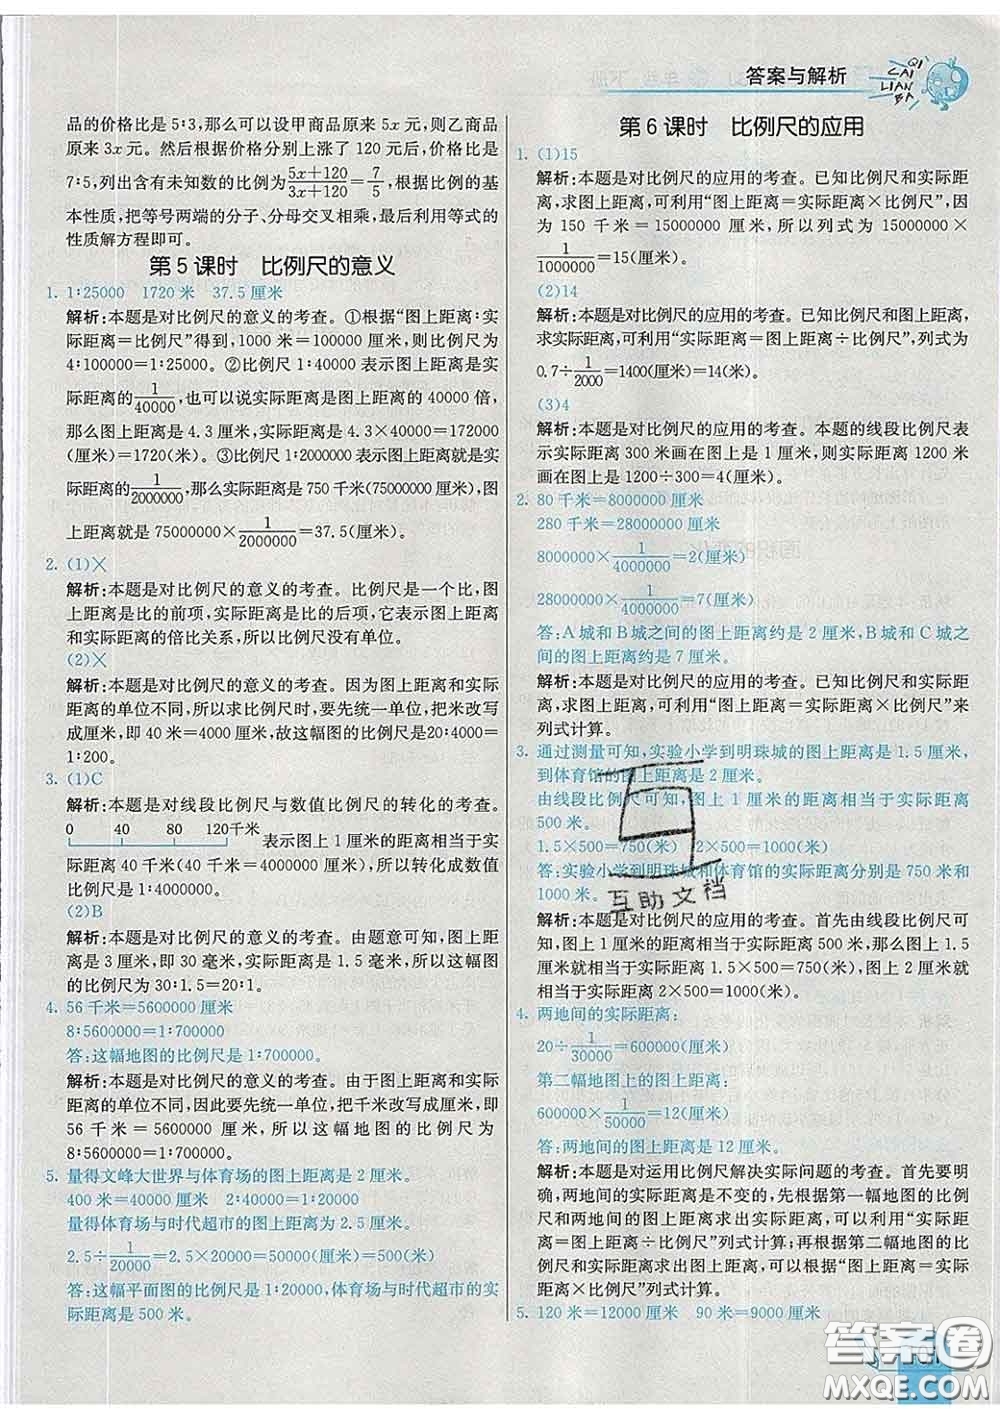 答案与解析
QI
CAI
LIAN
BA
品的价格比是5∶3,那么可以设甲商品原来5x元,则乙商品
原来3x元。然后根据价格分别上涨了120元后,价格比是
7∶5,列出含有未知数的比例为(5x+120)/(3x+120)=7/5,根据比例的基
本性质,把等号两端的分子、分母交叉相乘,最后利用等式的
性质解方程即可。
第5课时 比例尺的意义
1. 1∶25000 1720米 37.5厘米
解析:本题是对比例尺的意义的考查。①根据“图上距离∶实
际距离=比例尺”得到,1000米=100000厘米,则比例尺为
4∶100000=1∶25000。②比例尺1∶40000表示图上距离是
实际距离的1/40000,也可以说实际距离是图上距离的40000倍,
那么图上距离是4.3厘米,实际距离是4.3×40000=172000
(厘米)=1720(米)。③比例尺1∶2000000表示图上距离是实
际距离的1/2000000,那么实际距离是750千米(75000000厘米),图
上距离就是75000000×1/2000000=37.5(厘米)。
2. (1)×
解析:本题是对比例尺的意义的考查。比例尺是一个比,图
上距离是比的前项,实际距离是比的后项,它表示图上距离
和实际距离的倍比关系,所以比例尺没有单位。
(2)×
解析:本题是对比例尺的意义的考查。因为图上距离和实际
距离的单位不同,所以求比例尺时,要先统一单位,把米改写
成厘米,即40米=4000厘米,故这幅图的比例尺是20∶4000=
1∶200。
3. (1)C
解析:本题是对线段比例尺与数值比例尺的转化的考查。
0 40 80 120千米 表示图上1厘米的距离相当于实
际距离40千米(40千米=4000000厘米),所以转化成数值
比例尺是1∶4000000。
(2)B
解析:本题是对比例尺的意义的考查。由题意可知,图上距
离是3厘米,即30毫米,实际距离是1.5毫米,所以这幅图
的比例尺为30∶1.5=20∶1。
4. 56千米=5600000厘米
8∶5600000=1∶700000
答:这幅地图的比例尺是1∶700000。
解析:本题是对比例尺的意义的考查。由于图上距离和实际
距离的单位不同,因此要先统一单位,把千米改写成厘米,即
56千米=5600000厘米,所以这幅地图的比例尺为
8∶5600000=1∶700000。
5. 量得文峰大世界与体育场的图上距离是2厘米。
400米=40000厘米 2∶40000=1∶20000
量得体育场与时代超市的图上距离为2.5厘米。
2.5÷1/20000=2.5×20000=50000(厘米)=500(米)
答:这幅平面图的比例尺是1∶20000,体育场与时代超市的
实际距离是500米。
第6课时 比例尺的应用
1. (1)15
解析:本题是对比例尺的应用的考查。已知比例尺和实际距
离,求图上距离,可利用“图上距离=实际距离×比例尺”,因
为150千米=15000000厘米,所以列式为15000000×
1/1000000=15(厘米)。
(2)14
解析:本题是对比例尺的应用的考查。已知比例尺和图上距离,
求实际距离,可利用“实际距离=图上距离÷比例尺”,列式为
0.7÷1/2000=1400(厘米)=14(米)。
(3)4
解析:本题是对比例尺的应用的考查。本题的线段比例尺表
示实际距离300米画在图上是1厘米,则实际距离1200米
画在图上是1200÷300=4(厘米)。
2. 80千米=8000000厘米
280千米=28000000厘米
8000000×1/4000000=2(厘米)
28000000×1/4000000=7(厘米)
答:A城和B城之间的图上距离约是2厘米,B城和C城之
间的图上距离约是7厘米。
解析:本题是对比例尺的应用的考查。已知比例尺和实际距
离,求图上距离,可利用“图上距离=实际距离×比例尺”来
列式计算。
3. 通过测量可知,实验小学到明珠城的图上距离是1.5厘米,
到体育馆的图上距离是2厘米。
由线段比例尺可知,图上1厘米的距离相当于实际距离
500米。
1.5×500=750(米) 2×500=1000(米)
答:实验小学到明珠城和体育馆的实际距离分别是750米和
1000米。
解析:本题是对比例尺的应用的考查。首先由线段比例尺可
知,图上1厘米的距离相当于实际距离500米,那么图上1.5
厘米就相当于实际距离1.5×500=750(米),图上2厘米就
相当于实际距离2×500=1000(米)。
4. 两地间的实际距离:
20÷1/30000=600000(厘米)
第二幅地图上的图上距离:
600000×1/50000=12(厘米)
答:两地间的图上距离是12厘米。
解析:本题是对运用比例尺解决实际问题的考查。首先要明
确,两地间的实际距离是不变的,先根据第一幅地图的比例
尺和两地间的图上距离求出实际距离,可以利用“实际距离
=图上距离÷比例尺”列式计算;再根据第二幅地图的比例
尺和实际距离求出图上距离,可以利用“图上距离=实际距
离×比例尺”列式计算。
5. 120米=12000厘米 90米=9000厘米
互助文档
答案圈
MXQE.COM